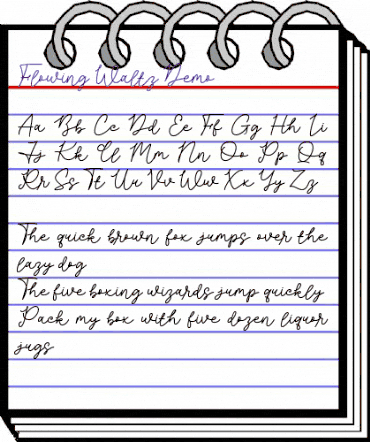 Flowing Waltz Demo
Aa Bb Cc Dd Ee Ff Gg Hh Ii
Jj Kk Ll Mm Nn Oo Pp Qq
Rr Ss Tt Uu Vv Ww Xx Yy Zz
The quick brown fox jumps over the
lazy dog
The five boxing wizards jump quickly
Pack my box with five dozen liquor
jugs